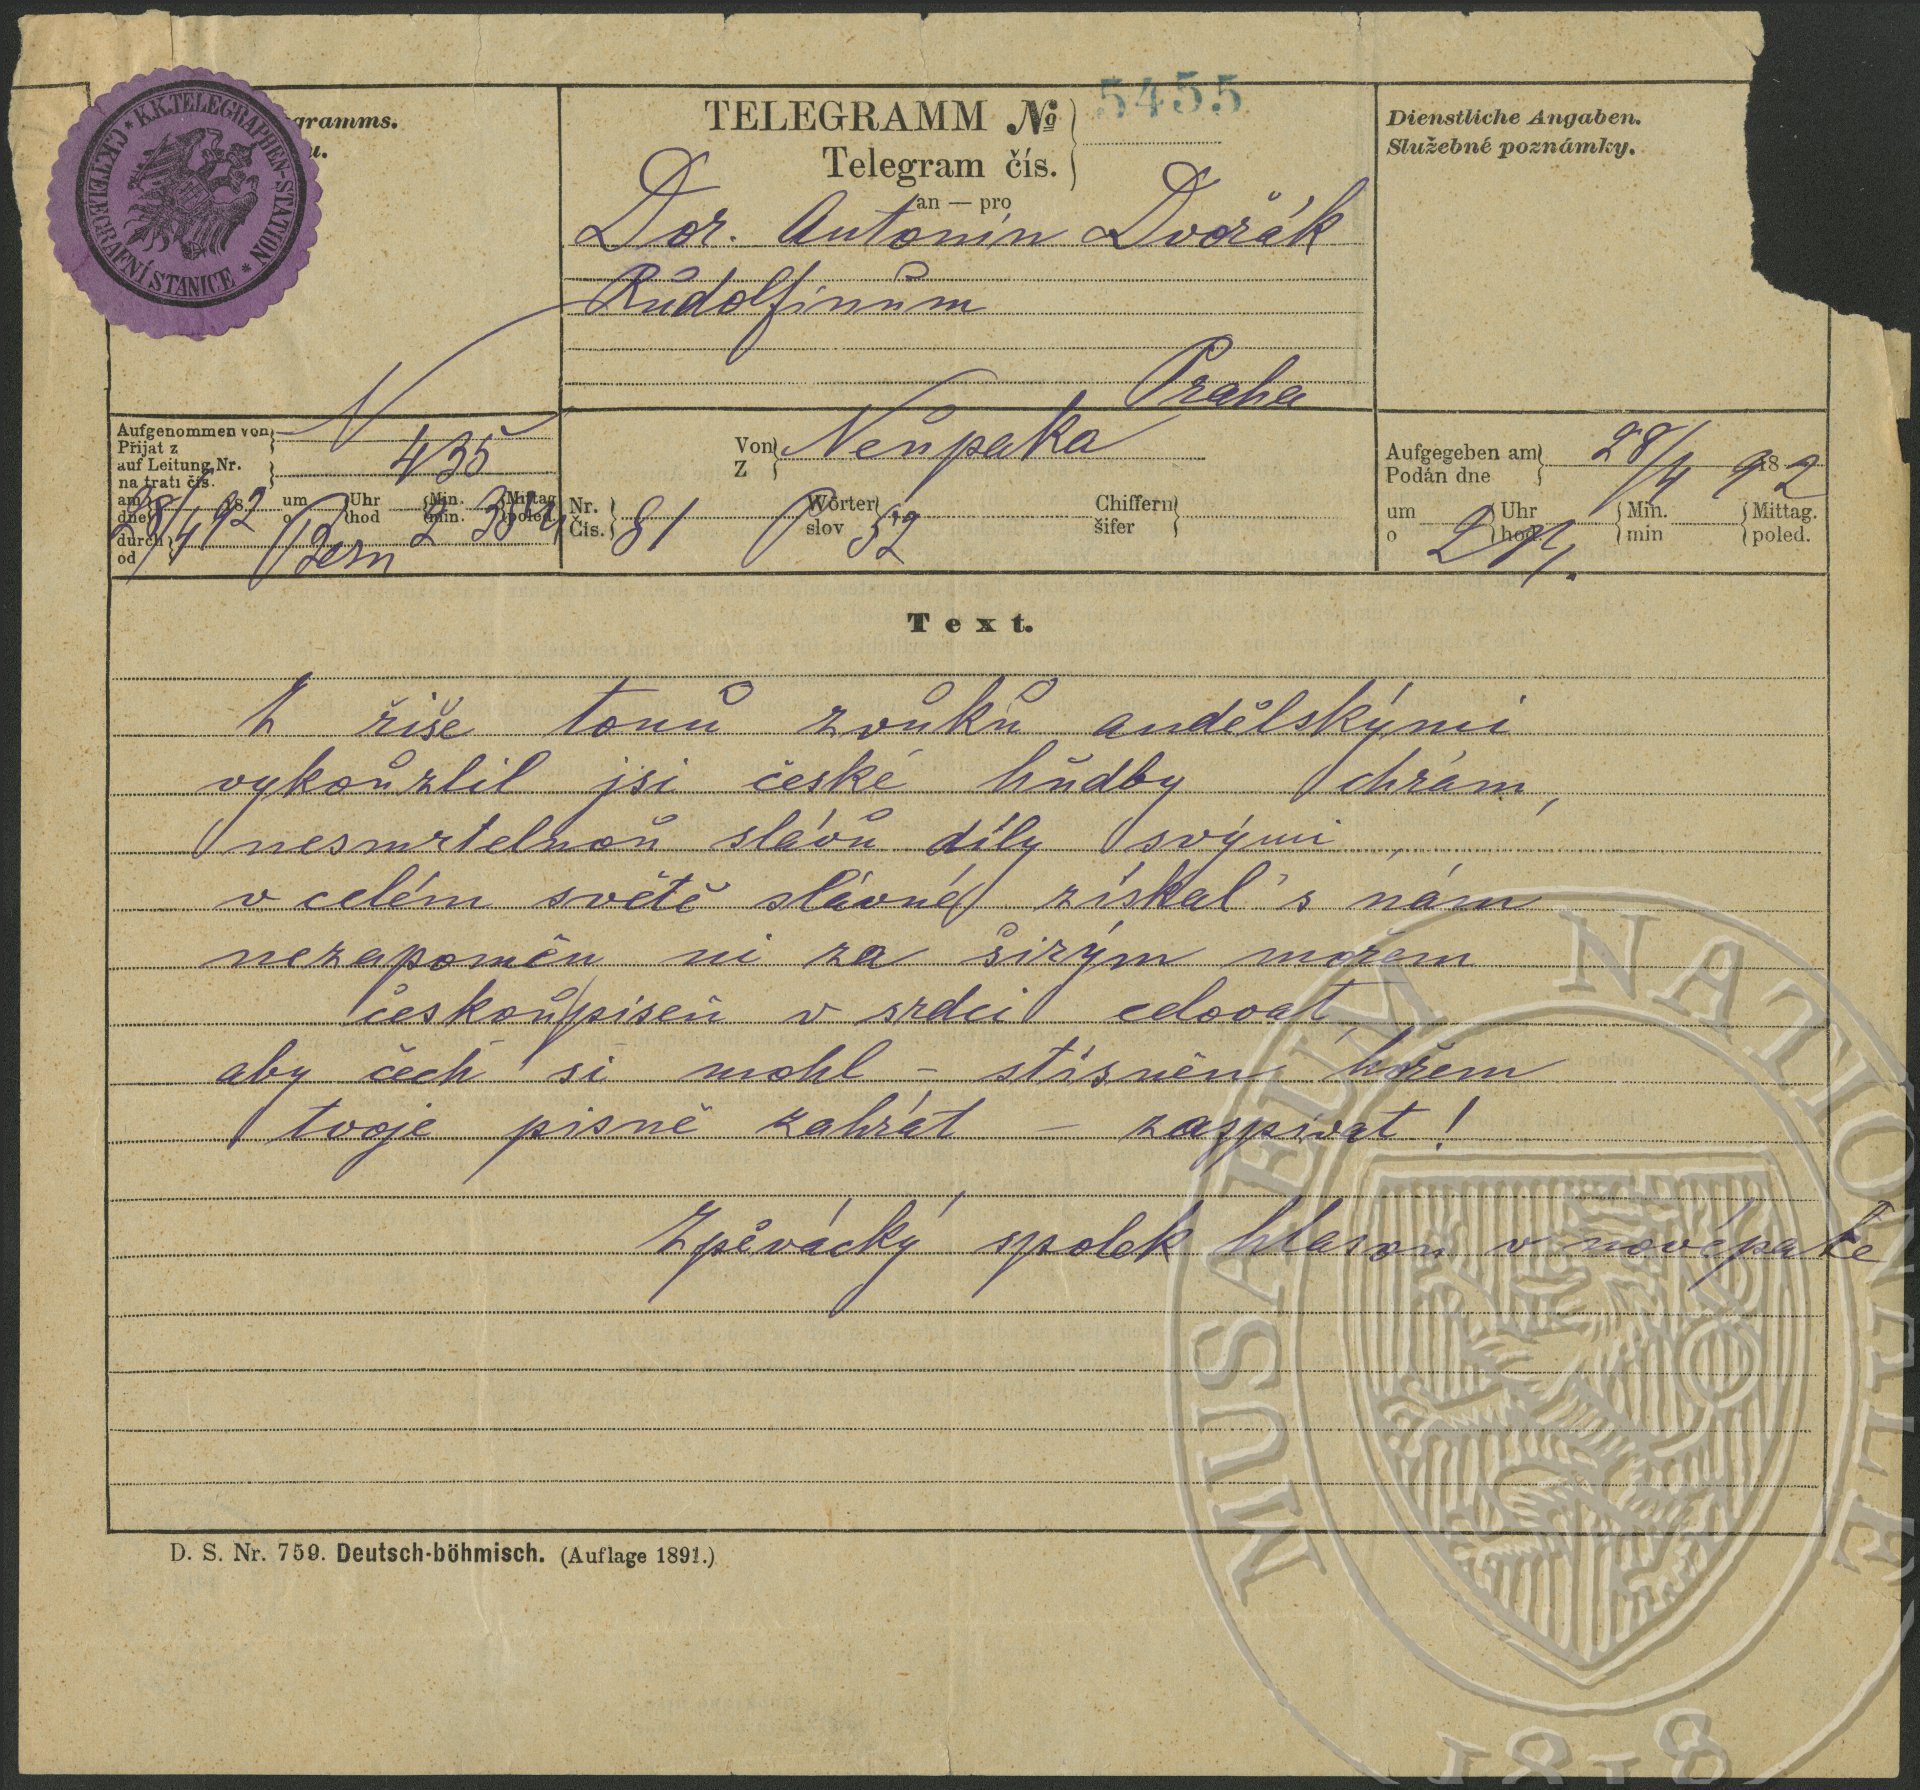 K. K. TELEGRAPHEN-STATION * C. K. TELEGRAFNÍ STANICE *
gramms.
u.
TELEGRAMM №
5455
Telegram čís.
an — pro
Dor. Antonín Dvořák
Rudolfinum
Praha
Dienstliche Angaben.
Služebné poznámky.
Aufgenommen von
Přijat z
auf Leitung Nr.
na trati čís.
435
am
dne
28/4 92
18
um
o
Uhr
hod
2
Min.
min.
Mittag
poled.
durch
od
Von
Z
Neupaka
Nr.
Čís.
81
Wörter
slov
52
Chiffern
šifer
Aufgegeben am
Podán dne
28/4 92
18
um
o
Uhr
hod.
Min.
min
Mittag.
poled.
Text.
Z říše tonů zvuků andělskými
vykouzlil jsi české hudby chrám,
nesmrtelnou slávu díly svými,
v celém světě slávné získal's nám
nezapoměn ni za širým mořem
českou píseň v srdci celovat,
aby čech si mohl – stísněn hořem
tvoje písně zahrát – zaspívat!
Zpěvácký spolek hlason v novépake
D. S. Nr. 759. Deutsch-böhmisch. (Auflage 1891.)
MUSAEUM NATIONALE
1818